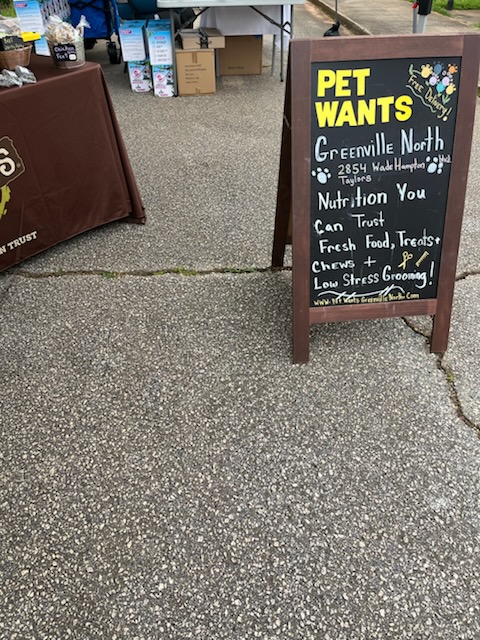 PET
WANTS
Free Delivery!
Greenville North
2854 Wade Hampton Blvd.
Taylors
Nutrition You
Can Trust
Fresh Food, Treats +
Chews +
Low Stress Grooming!
www.Pet Wants Greenville North.Com
Chicken
Feet
S
N TRUST